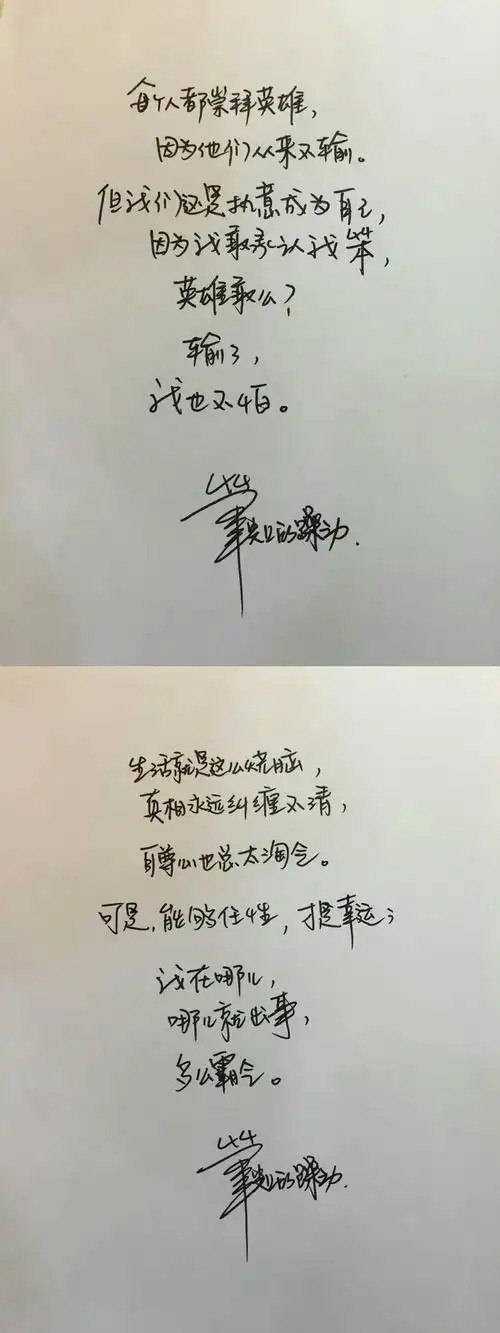 每个人都崇拜英雄，
因为他们从来不输。
但我们还是执意成为自己，
因为我敢承认我笨，
英雄敢么？
输了，
我也不怕。
的躁动.
生活就是这么烧脑，
真相永远纠缠不清，
自尊心也总太淘气。
可是，能够任性，才是幸运；
我在哪儿，
哪儿就出事，
多么霸气。
的躁动.